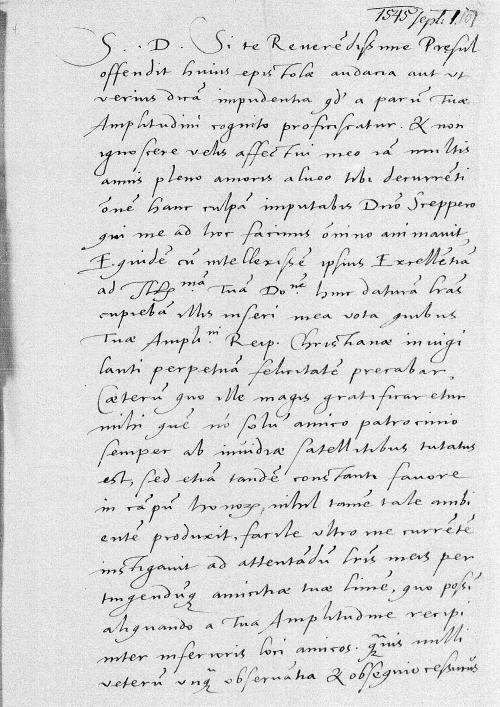 1545 Sept. 1.
S. D. Si te Reverēdissime Presul
offendit huius epistolæ audacia aut ut
verius dicā impudentia qd a parū Tuæ
Amplitudini cognito proficiscatur. & non
ignoscere velis affectui meo iā multis
annis pleno amoris alveo tibi decurrēti
ōnē hanc culpā imputabis Dnō Sceppero
qui me ad hoc facinus ōnino animavit
Equidē cū intellexissē ipsius Excellētiā
ad Illmā Tuā Donē hinc daturā lrās
cupiebā illis inseri mea vota quibus
Tuæ Amplini Reip. Christianæ invigi
lanti perpetuā felicitatē precabar.
Cæterū quo ille magis gratificaretur
mihi quē nō solū amico patrocinio
semper ab invidiæ satellitibus tutatus
est, sed etiā tandē constanti favore
in cāpū honorū, nihil tamē tale ambi
entē produxit, facile ultro me currētē
instigavit ad attentādū lris meis per
tingendūq amicitiæ tuæ limē, quo possī
aliquando a Tua Amplitudine recipi
inter inferioris loci amicos. quāvis nulli
veterū unq̄ observātia & obsequio cessurus